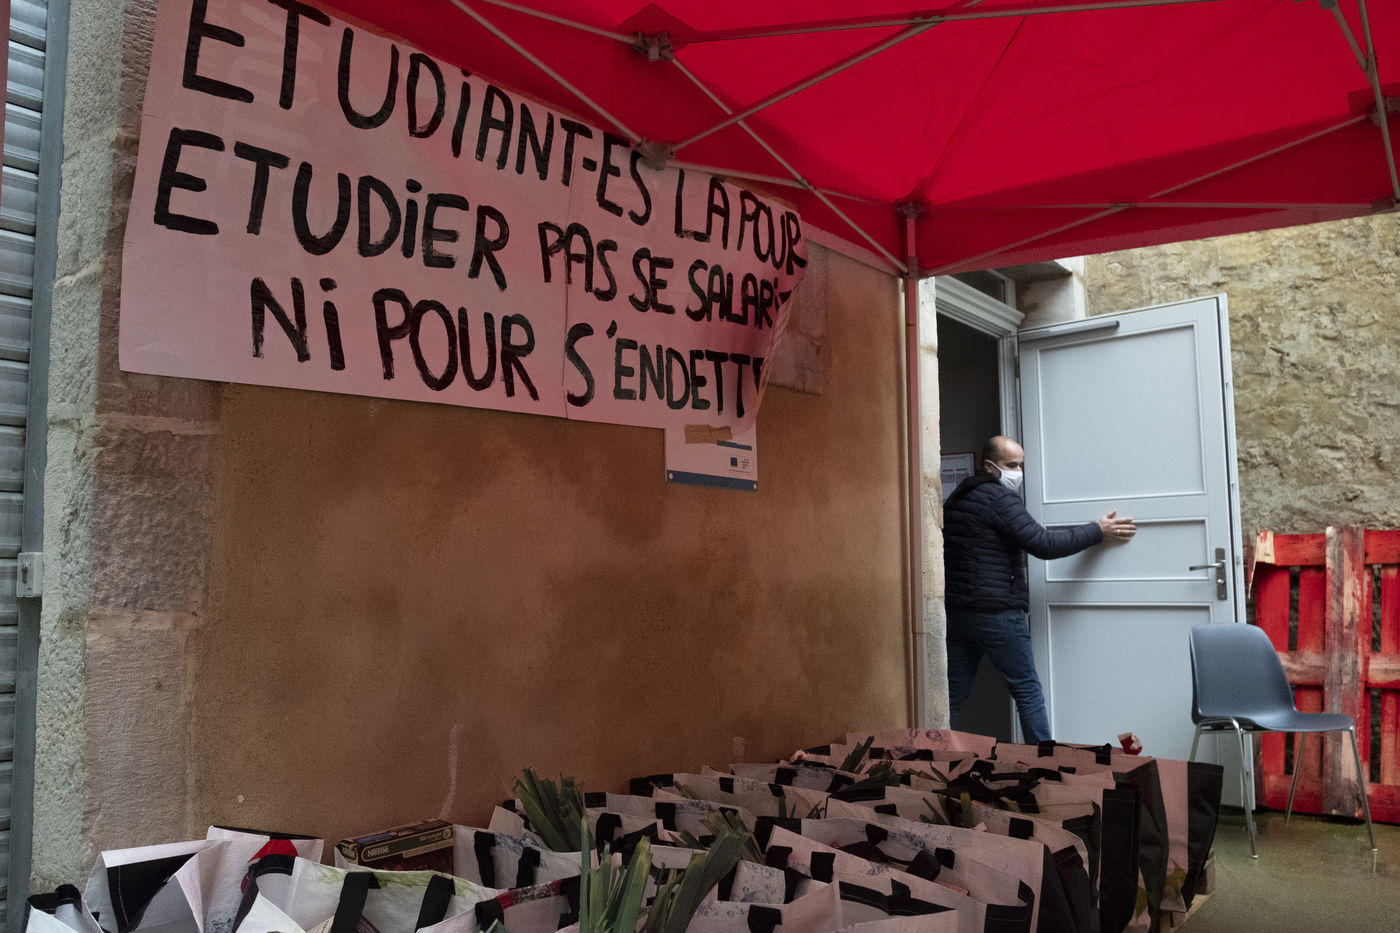 ETUDiANT-ES LA POUR
ETUDiER PAS SE SALARi
Ni POUR S'ENDETT
Nestlé